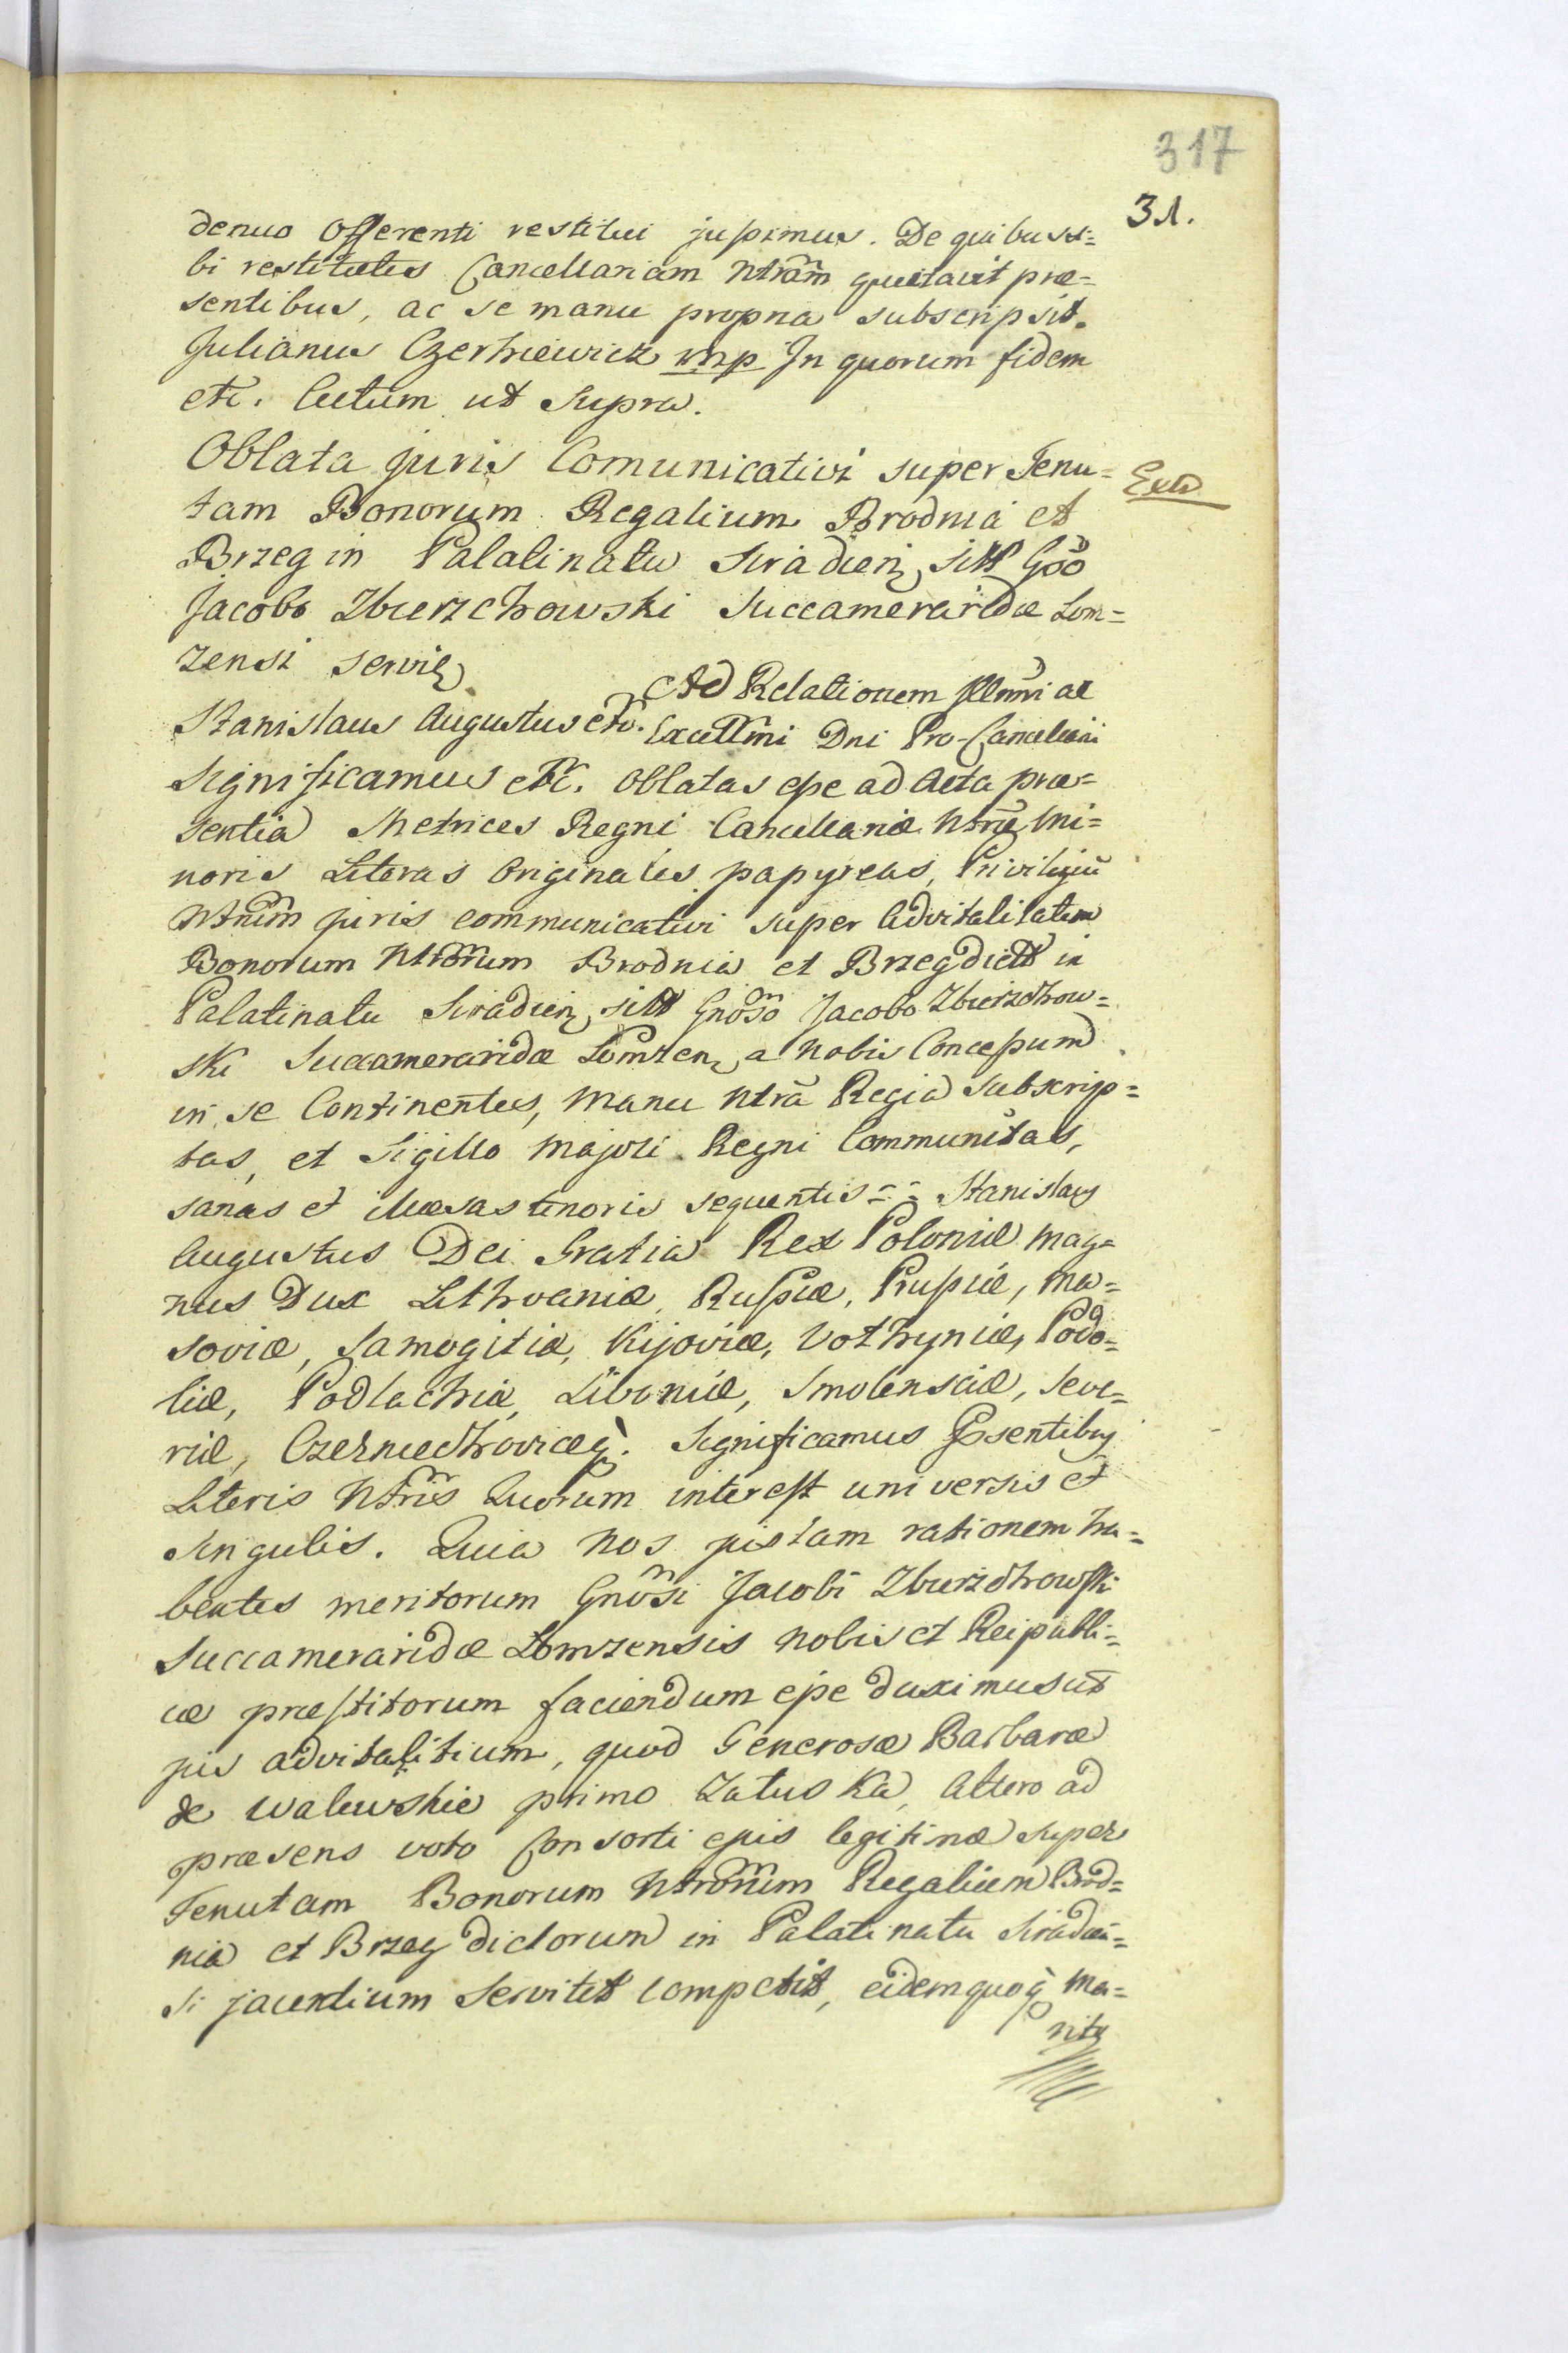 317
31.
denuo Offerenti restitui jussimus. De quibus si=
bi restitutis Cancellariam Ntram quietavit præ=
sentibus, ac se manu propria subscripsit.
Julianus Czerniewicz mp In quorum fidem
etc. Actum ut Supra.
Oblata juris Comunicativi super Tenu=
Extd
tam Bonorum Regalium Brodnia et
Brzeg in Palatinatu Siradien sitt Gsō
Jacobo Zburzchowski Succameraridæ Lom=
zensi servi
Ad Relationem Illmi ac
Stanislaus Augustus etc. Excellmi Dni Pro-Cancellarii
Significamus etc. Oblatas esse ad Acta præ=
sentia Metrices Regni Cancellariæ Ntræ Mi=
noris Literas Originales papyreas, Privilegiū
Ntrum juris communicativi super Advitalitatem
Bonorum Ntrorum Brodnia et Brzeg dictt in
Palatinatu Siradien sitt Gnoso Jacobo Zburzchow=
ski Succameraridæ Lomzen a Nobis Concessum
in se Continentes, Manu Ntrā Regia Subscrip=
tas, et Sigillo Majori Regni Communitas,
sanas et illæsas tenoris sequentis == Stanislaus
Augustus Dei Gratia Rex Poloniæ Mag=
nus Dux Lithvaniæ, Russiæ, Prussiæ, Ma=
soviæ, Samogitiæ, Kijoviæ, Volhyniæ, Podo=
liæ, Podlachiæ, Livoniæ, Smolensciæ, Seve=
riæ, Czerniechoviæq. Significamus Psentibus
Literis Ntris Quorum interest universis et
Singulis. Quia Nos justam rationem ha=
bentes meritorum Gnosi Jacobi Zburzchowski
Succameraridæ Lomzensis Nobis et Reipubli=
cæ præstitorum faciendum esse duximus ut
jus advitalitium, quod Generosæ Barbaræ
de Walewskie primo Zatuska, altero ad
præsens voto Consorti ejus legitimæ super
Tenutam Bonorum Ntrorum Regalium Brod=
nia et Brzeg dictorum in Palatinatu Siradien=
si jacentium Servitet competit, eidemquoq Ma=
rito